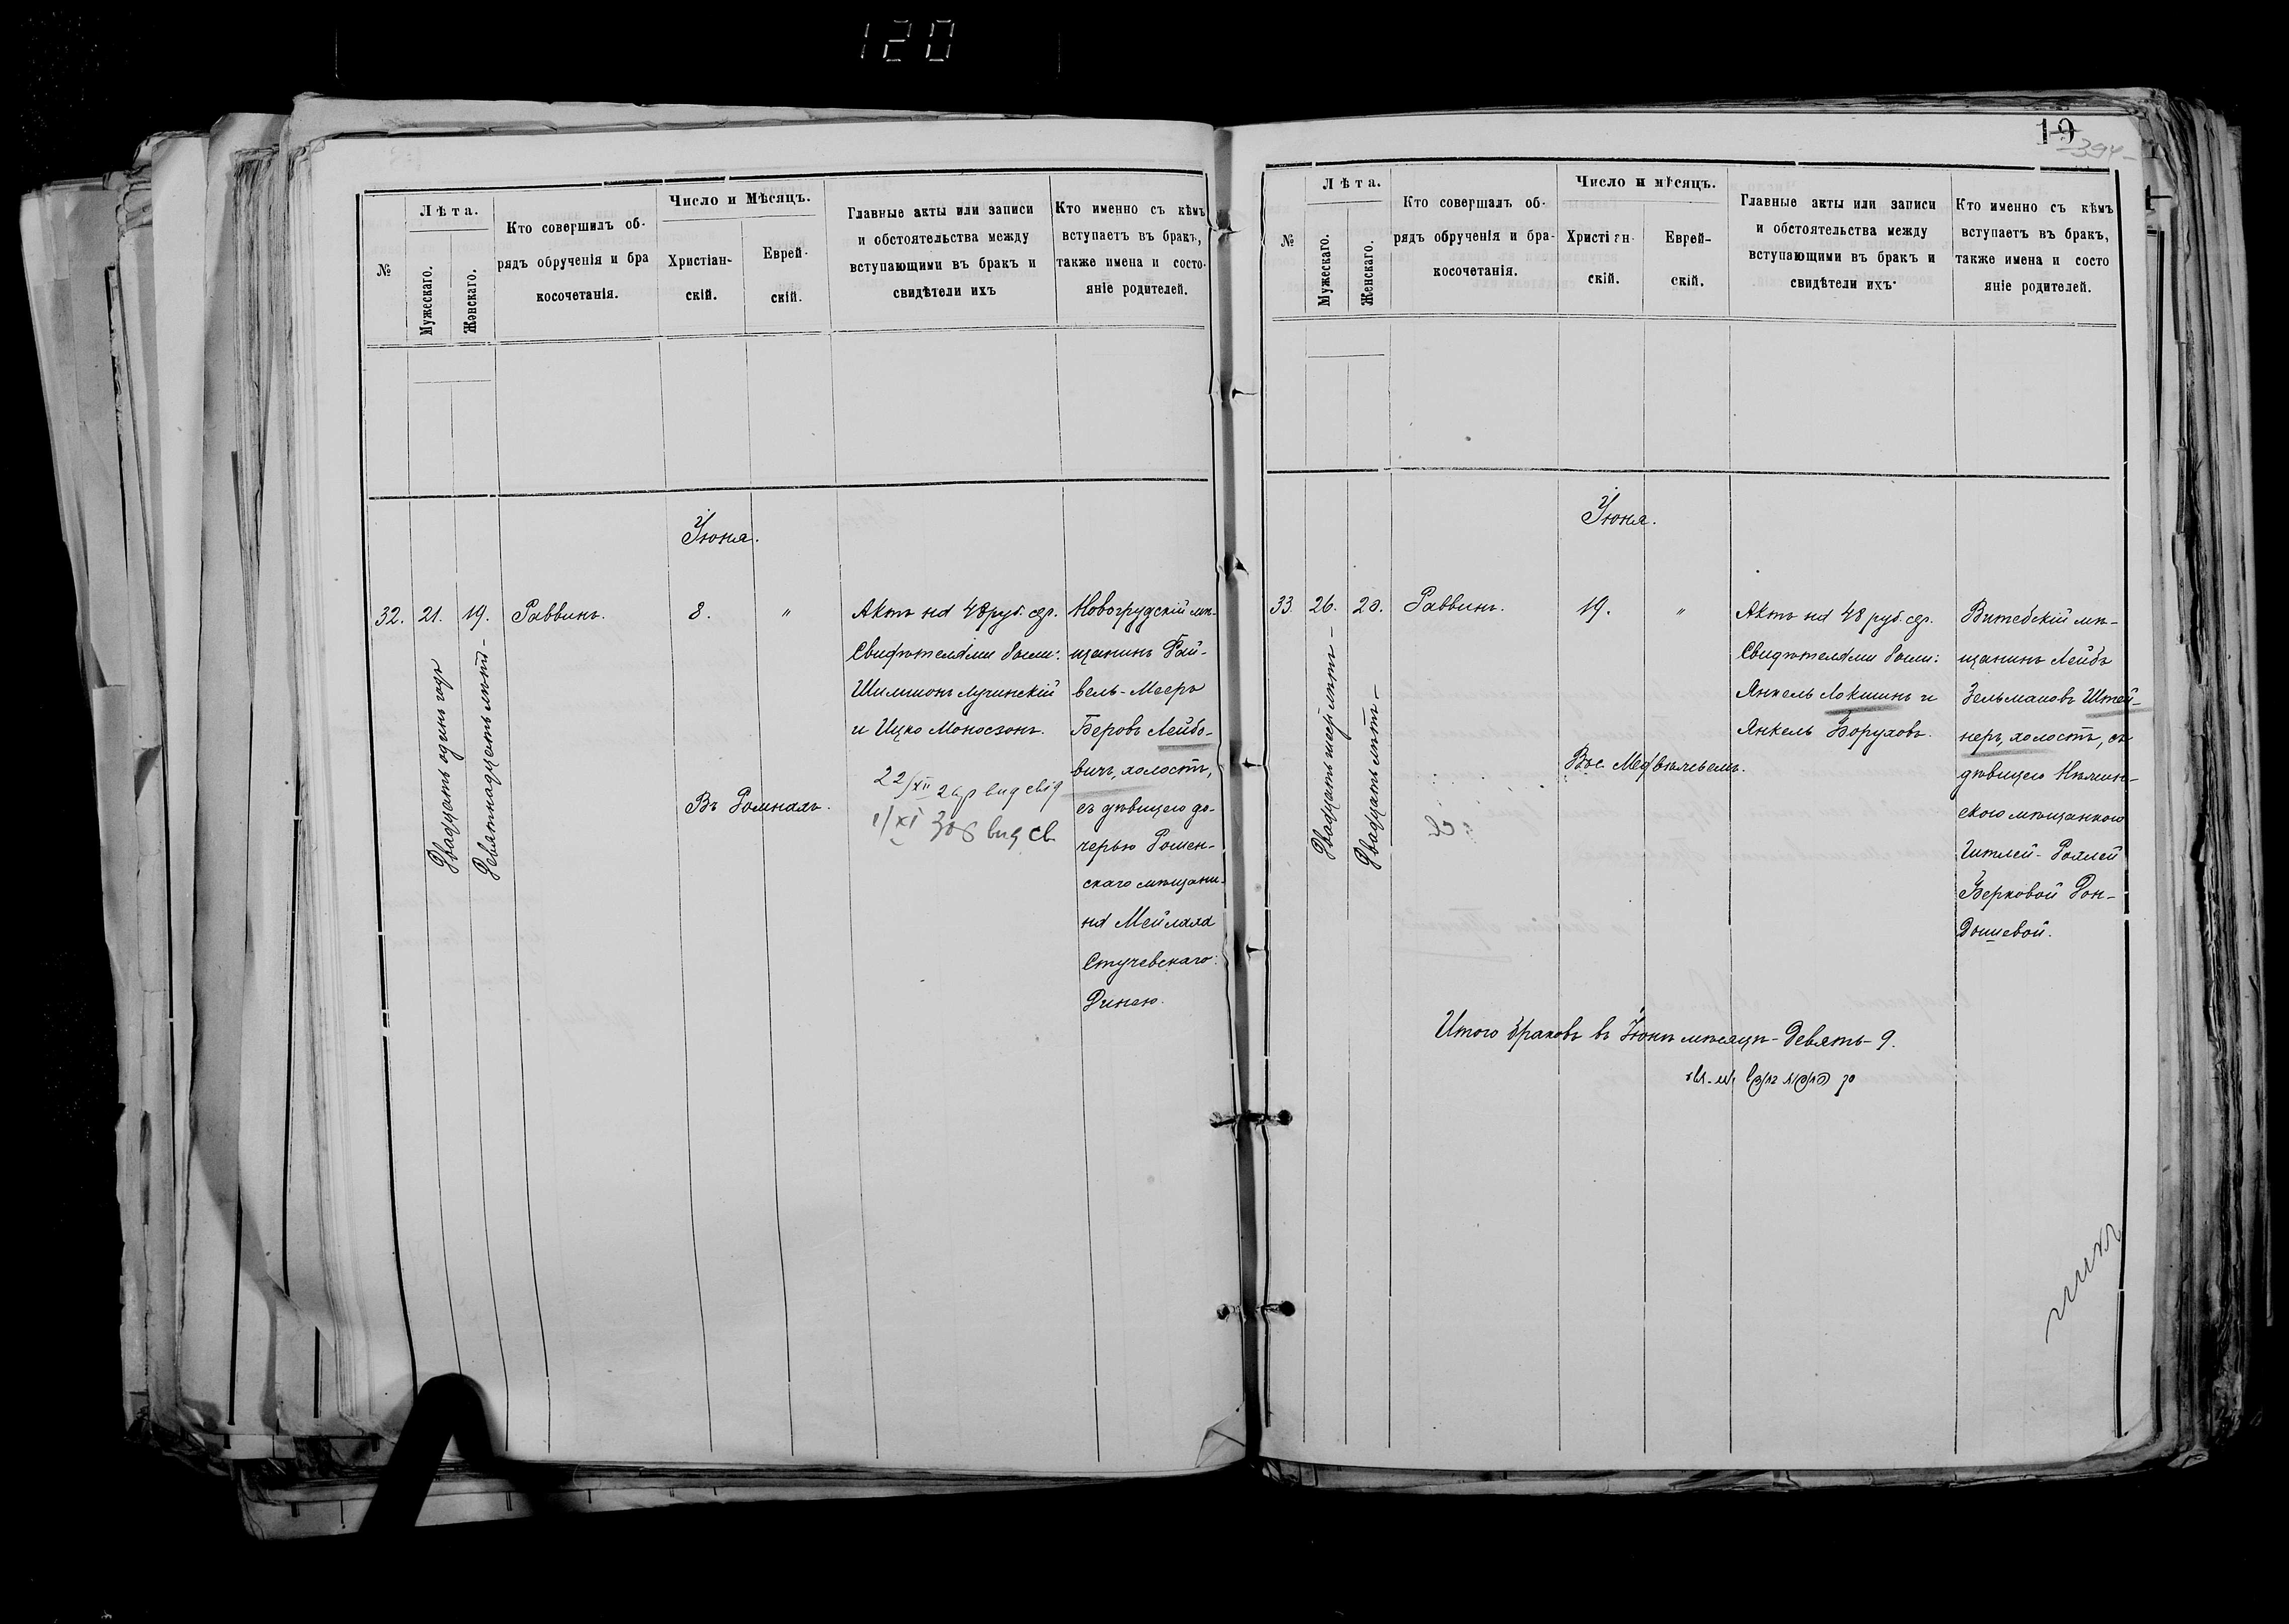 120
№
Лѣта.
Мужескаго.
Женскаго.
Кто совершилъ об-
рядъ обрученія и бра
косочетанія.
Число и Мѣсяцъ.
Христіан-
скій.
Еврей-
скій.
Главные акты или записи
и обстоятельства между
вступающими въ бракъ и
свидѣтели ихъ
Кто именно съ кѣмъ
вступаетъ въ бракъ,
также имена и состо-
яніе родителей.
Іюня.
32.
21.
Двадцать одинъ годъ
19.
Девятнадцать лѣтъ -
Раввинъ.
8.
"
Въ Ромнахъ.
Актъ на 48 руб. сер.
Свидѣтелями были:
Шиммонъ Лучинскій
и Ицко Моносзонъ.
22/XII
1/XI
Новогрудскій мѣ-
щанинъ Фай-
вель-Мееръ
Беровъ Лейбо-
вичъ, холостъ,
съ дѣвицею до-
черью Ромен-
скаго мѣщани-
на Мейлаха
Стучевскаго:
Динею.
19
-394-
№
Лѣта.
Мужескаго.
Женскаго.
Кто совершалъ об-
рядъ обрученія и бра-
косочетанія.
Число и мѣсяцъ.
Христіян-
скій.
Еврей-
скій.
Главные акты или записи
и обстоятельства между
вступающими въ бракъ и
свидѣтели ихъ
Кто именно съ кѣмъ
вступаетъ въ бракъ,
также имена и состо
яніе родителей.
Іюня.
33.
26.
Двадцать шесть лѣтъ -
20.
Двадцать лѣтъ -
Раввинъ.
19.
"
Актъ на 48 руб. сер.
Свидѣтелями были:
Янкель Локшинъ и
Янкель Боруховъ.
Витебскій мѣ-
щанинъ Лейбъ
Зельмановъ Штей-
неръ, холостъ, съ
дѣвицею
скою мѣщанкою
Берковой Дон-
Дышевой.
Итого браковъ въ Іюнѣ мѣсяцѣ - девять - 9.